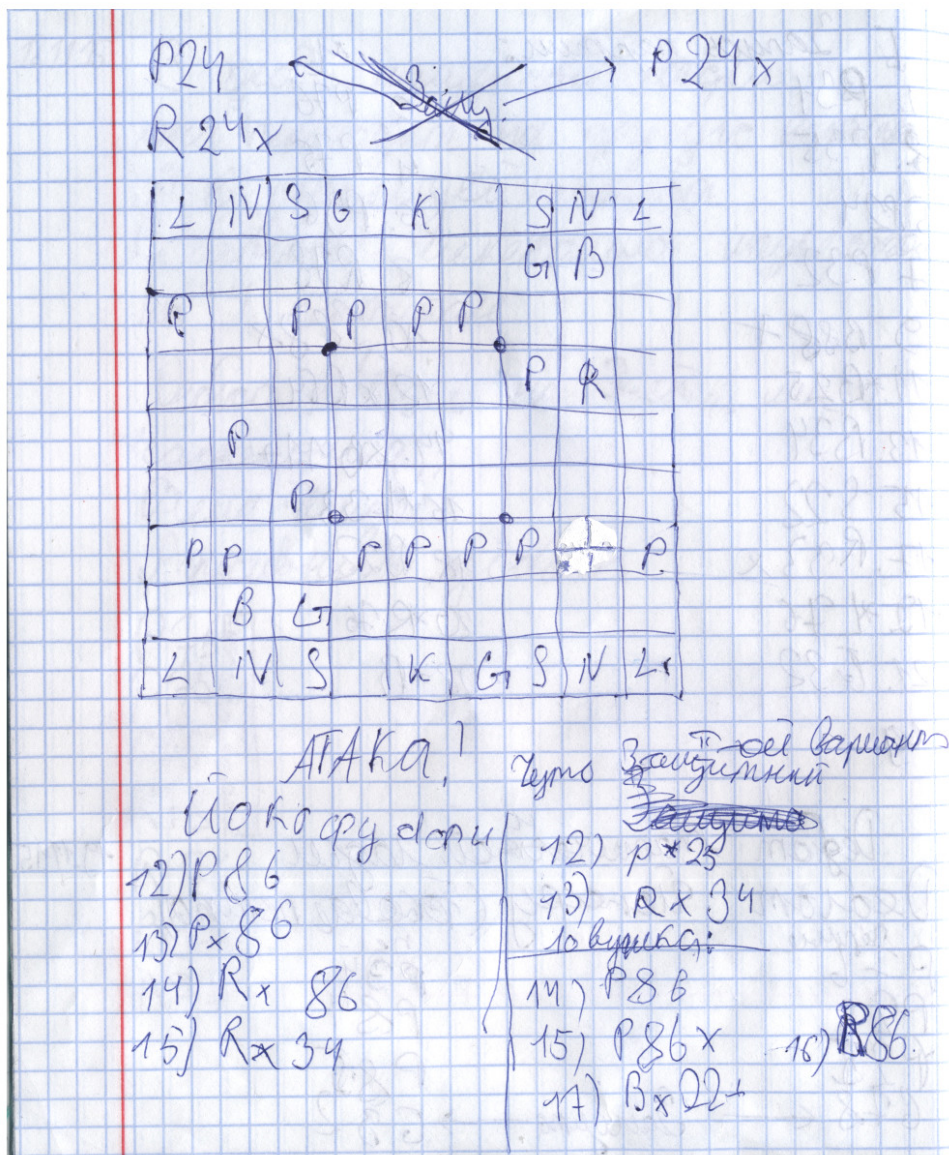 P24
P24x
R24x
L N S G K S N L
G B
P P P P P
P R
P
P
P P P P P P P
B G
L N S K G S N L
АТАКА!
Йокофудори
12) P86
13) Px86
14) Rx 86
15) Rx 34
Чуто II-ой вариант
Защитный
12) P*25
13) Rx34
ловушка:
14) P86
15) P86x 16) R86
17) Bx22+